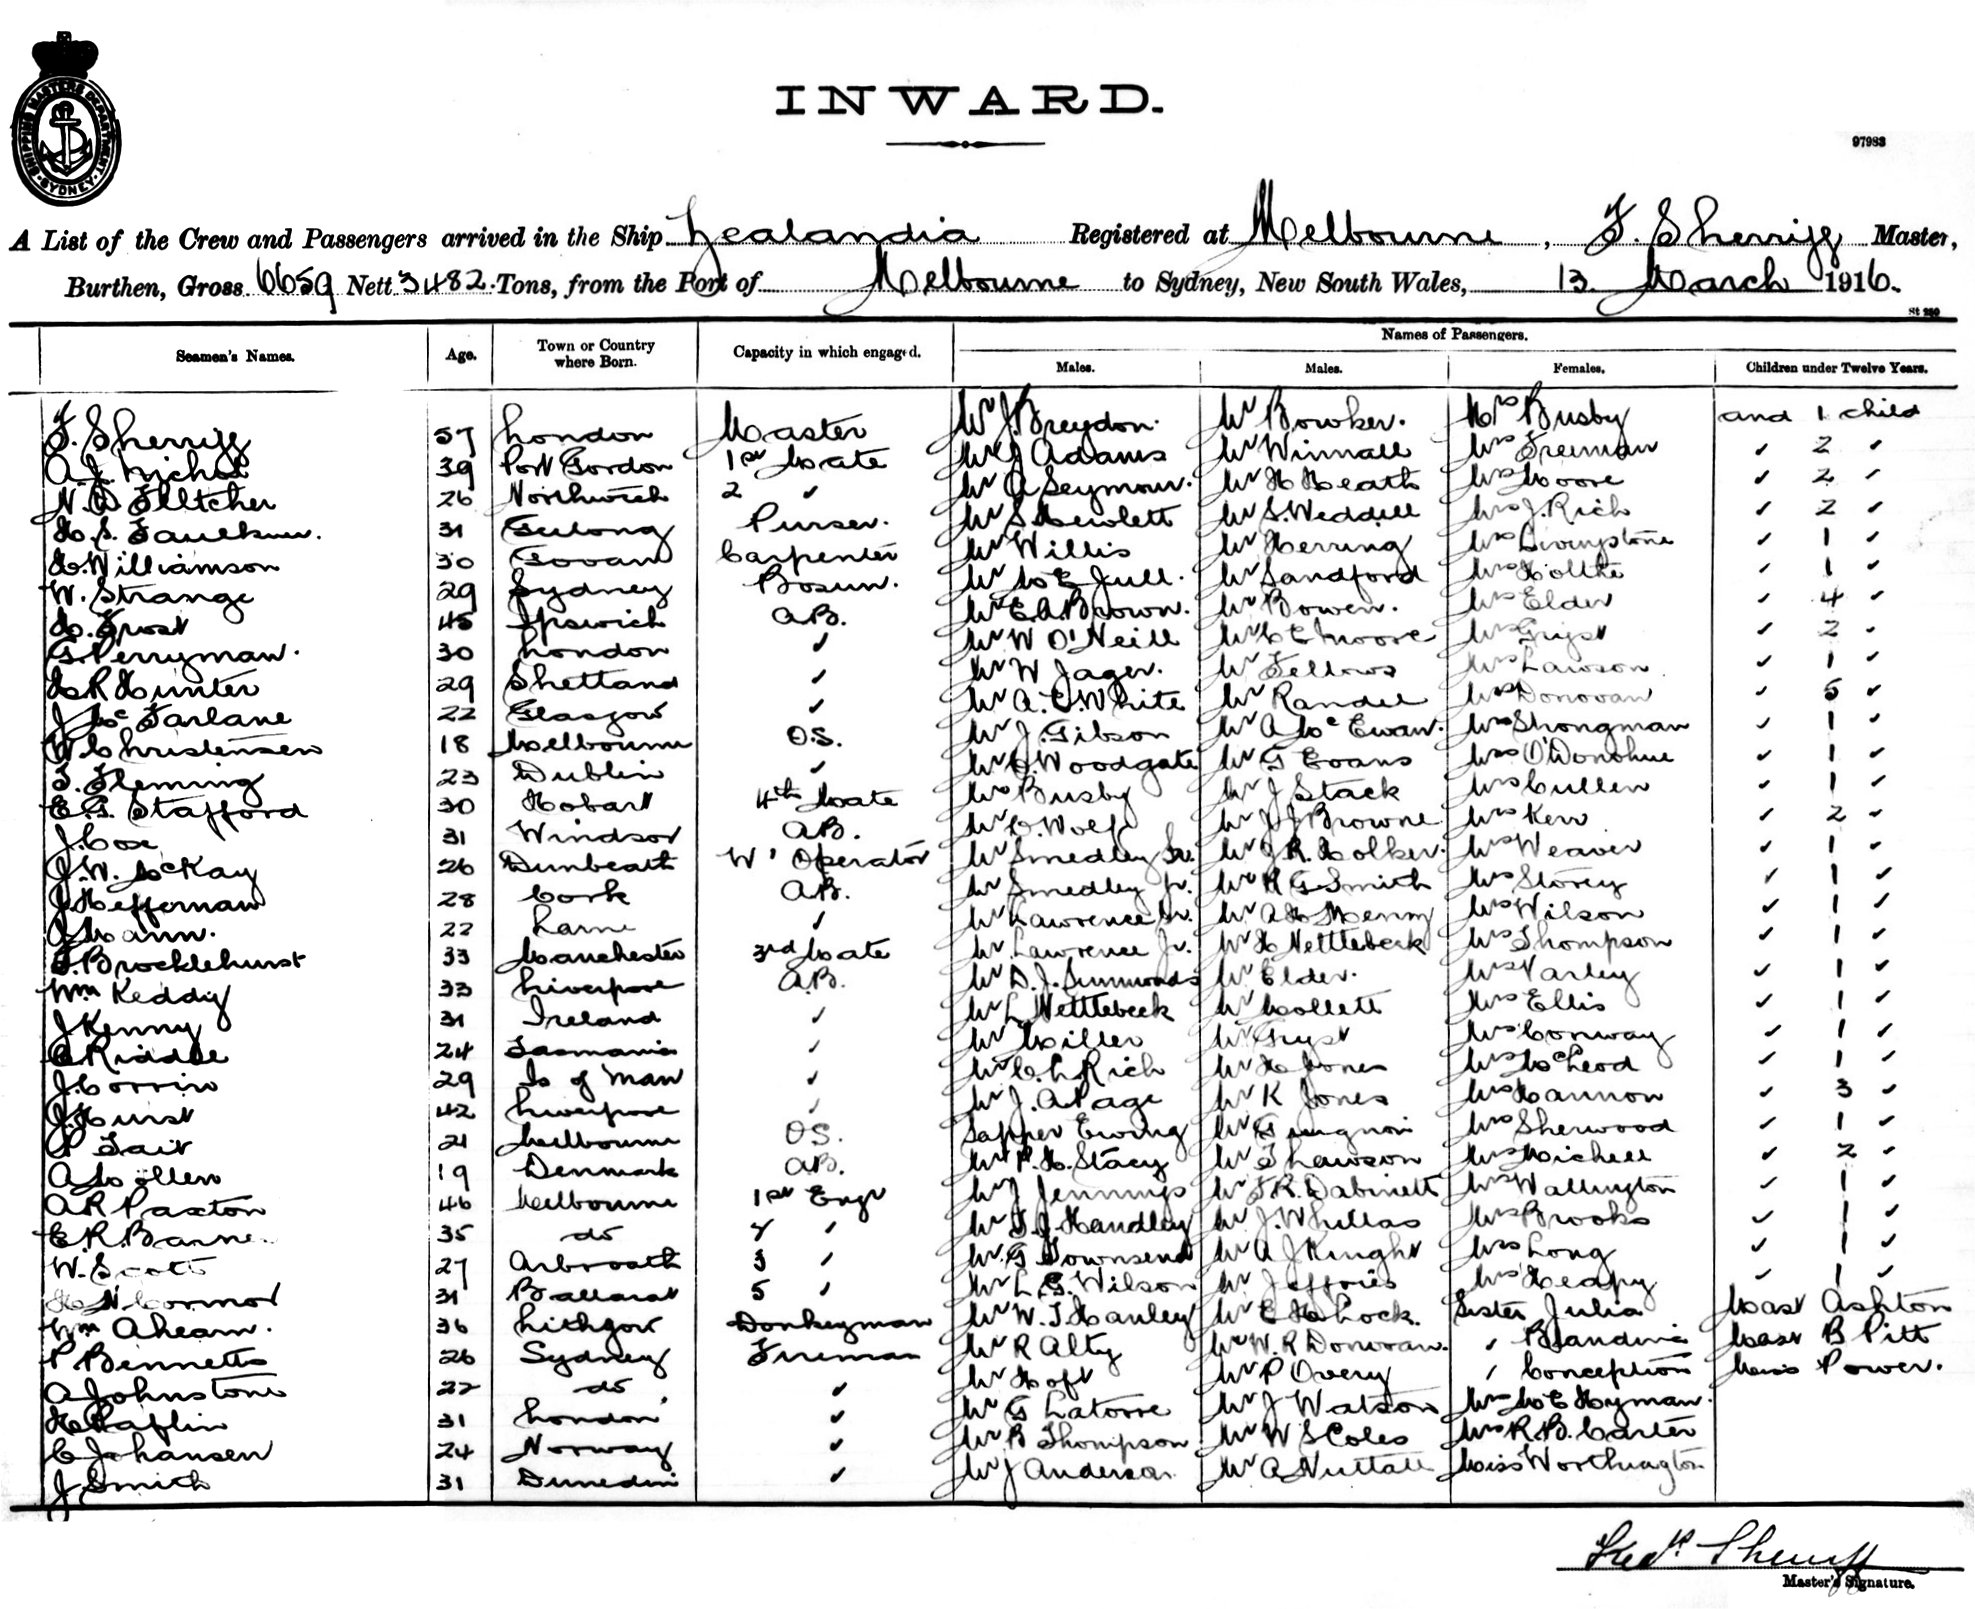 SHIPPING MASTERS DEPARTMENT. SYDNEY.
INWARD.
97983
A List of the Crew and Passengers arrived in the Ship Zealandia Registered at Melbourne, F. Sherriff Master,
Burthen, Gross 6659 Nett 3482 Tons, from the Port of Melbourne to Sydney, New South Wales, 13 March 1916.
St 230
Names of Passengers.
Seamen's Names. Age. Town or Country where Born. Capacity in which engaged. Males. Males. Females. Children under Twelve Years.
F. Sherriff 57 London Master Mr J. Breydon. Mr Bowker. Mrs Busby and 1 child
A. J. Nichol 39 Port Gordon 1st Mate Mr J Adams Mr Winnall Mrs Freeman ✓ 2 ✓
N. D Flltcher 26 Northwich 2 ✓ Mr A Seymour. Mr H Heath Mrs Moore ✓ 2 ✓
H. S. Faulkner. 31 Geelong Purser. Mr S Hewlett Mr S. Weddell Mrs J. Rich ✓ 2 ✓
H. Williamson 30 Govan Carpenter Mr Willis Mr Herring Mrs Livingstone ✓ 1 ✓
W. Strange 29 Sydney Bosun. Mr M E Jull. Mr Sandford Mrs Holthe ✓ 1 ✓
H. Frost 45 Ipswich A.B. Mr E. A. Brown. Mr Bowen. Mrs Elder ✓ 4 ✓
G. Perryman. 30 London ✓ Mr W O'Neill Mr C E Moore Mrs Gryst ✓ 2 ✓
H R Hunter 29 Shetland ✓ Mr W Jager. Mr Fellows Mrs Lawson ✓ 1 ✓
J McFarlane 22 Glasgow ✓ Mr A. E. White Mr Randel Mrs Donovan ✓ 5 ✓
W Christensen 18 Melbourne O.S. Mr J. Gibson Mr A McEwan. Mrs Shongman ✓ 1 ✓
T. Fleming 23 Dublin ✓ Mr J. Woodgate Mr G Evans Mrs O'Donohue ✓ 1 ✓
E. G. Stafford 30 Hobart 4th Mate Mr Busby Mr J Stack Mrs Cullen ✓ 1 ✓
J. Cox 31 Windsor A.B. Mr C. Wolf Mr J J Browne Mrs Kerr ✓ 2 ✓
J. W. McKay 26 Dunbeath W' Operator Mr Smedley Sr. Mr J. R. Holker. Mrs Weaver ✓ 1 ✓
J Heffernan 28 Cork A.B. Mr Smedley Jr. Mr R G Smith Mrs Storey ✓ 1 ✓
J Mann. 22 Larne ✓ Mr Lawrence Sr. Mr A H Henry Mrs Wilson ✓ 1 ✓
F. Brocklehurst 33 Manchester 3rd Mate Mr Lawrence Jr. Mr H Nettlebeck Mrs Thompson ✓ 1 ✓
Wm Keddig 33 Liverpool A.B. Mr D. J. Simmonds Mr Elder. Mrs Varley ✓ 1 ✓
J Kenny 31 Ireland ✓ Mr L Nettlebeck Mr Collett Mrs Ellis ✓ 1 ✓
C Riddle 24 Tasmania ✓ Mr Miller Mr Gryst Mrs Conway ✓ 1 ✓
J. Corrin 29 Is of Man ✓ Mr C. L Rich Mr H Jones Mrs McLeod ✓ 1 ✓
J. Hurst 42 Liverpool ✓ Mr J. A Page Mr K Jones Mrs Hannon ✓ 3 ✓
P Tait 21 Melbourne O.S. Sapper Ewing Mr G Mrs Sherwood ✓ 1 ✓
A Mollen 19 Denmark A.B. Mr P. H. Stacy Mr T Lawson Mrs Michell ✓ 2 ✓
A R Paxton 46 Melbourne 1st Engr Mr J Jennings Mr F. R. Dabinett Mrs Wallington ✓ 1 ✓
E. R. Barne 35 do 2 ✓ Mr T. J. Handley Mr J. Whillas Mrs Brooks ✓ 1 ✓
W. Scott 27 Arbroath 3 ✓ Mr G Townsend Mr A J Knight Mrs Long ✓ 1 ✓
H N Cormor 31 Ballarat 5 ✓ Mr L. G. Wilson Mr Jeffries Mrs Heapy ✓ 1 ✓
Wm Ahearn. 36 Lithgow Donkeyman Mr W. T Hanley Mr E H Lock. Sister Julia Mast Ashton
P Bennetts 26 Sydney Fireman Mr R Alty Mr W. R Donovan. ✓ Blandina Mast B Pitt
A Johnstone 22 do ✓ Mr Hoft Mr P Overy ✓ Conception Miss Power.
H Laflin 31 London ✓ Mr G Latorre Mr J Watson Mrs M E Hyman.
C Johansen 24 Norway ✓ Mr B Thompson Mr W S Coles Mrs R. B. Carter
J Smith 31 Dunedin ✓ Mr J Anderson. Mr A Nuttall Miss Worthington
Fredk Sherriff
Master's Signature.